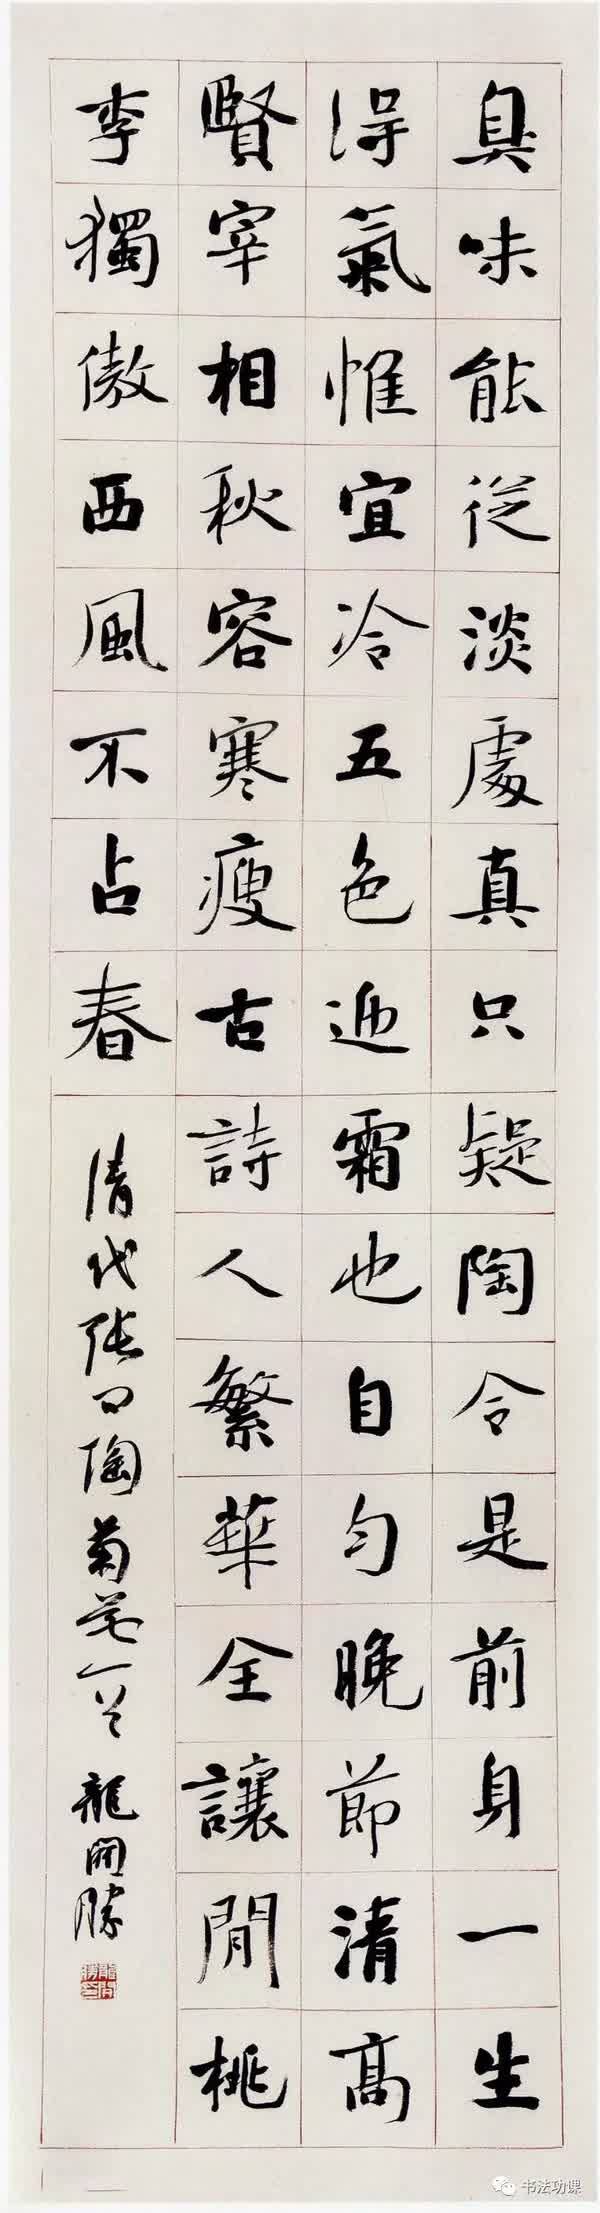 臭味能從淡處真只疑陶令是前身一生
得氣惟宜冷五色迎霜也自勻晚節清高
賢宰相秋容寒瘦古詩人繁華全讓閒桃
李獨傲西風不占春
清代張問陶菊花一首 龍開勝
書法功课